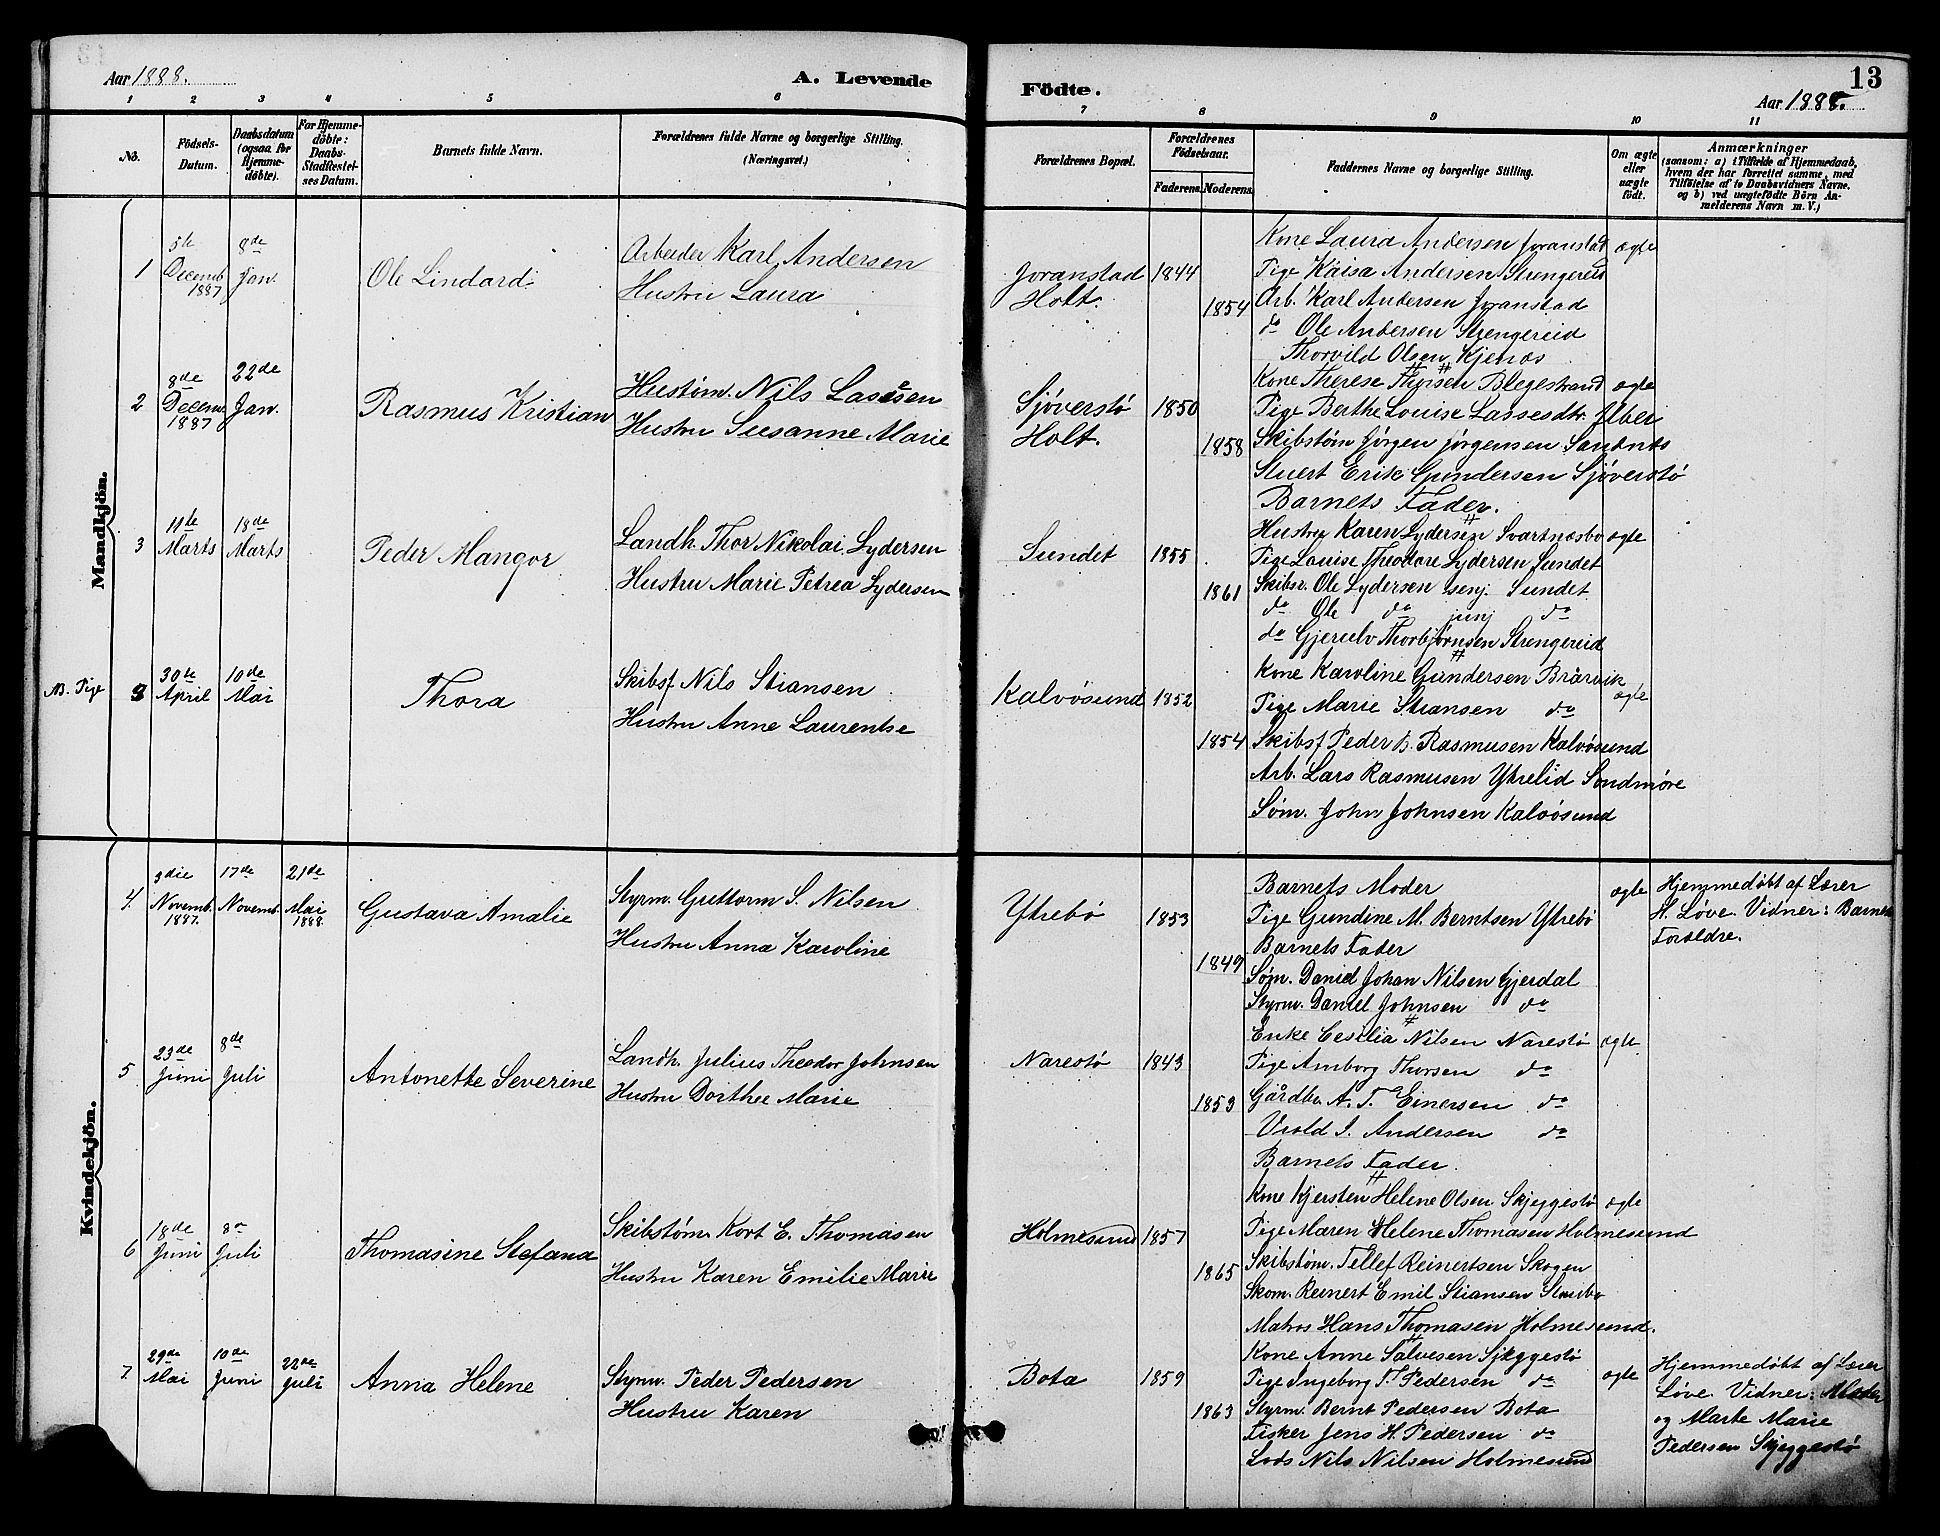 Aar 1888.
A. Levende
Födte.
13
Aar 1888.
1 2 3 4 5 6 7 8 9 10 11
No.
Födsels-Datum.
Daabsdatum (ogsaa for Hjemme-döbte).
For Hjemme-döbte: Daabs-Stadfæstel-ses Datum.
Barnets fulde Navn.
Forældrenes fulde Navne og borgerlige Stilling. (Næringsvei.)
Forældrenes Bopæl.
Forældrenes Födselsaar.
Faderens. Moderens.
Faddernes Navne og borgerlige Stilling.
Om ægte eller uægte födt.
Anmærkninger
(saasom: a) i Tilfælde af Hjemmedaab, hvem der har forrettet samme, med Tilföielse af to Daabsvidners Navne, og b) ved uægtefödte Börn An-melderens Navn m. V.)
Mandkjön.
1
5te Decemb. 1887
8de Jan.
Ole Lindard
Arbeider Karl Andersen
Hustru Laura
Joranstad
Holt.
1844
1854
Kone Laura Andersen Joranstad
Pige Kaisa Andersen Strengereid
Arb. Karl Andersen Joranstad
do Ole Andersen Strengereid
Thorvild Olsen Kjenæs
ægte
2
8de Decem. 1887
22de Jan.
Rasmus Kristian
Hustøm. Nils Lassen
Hustru Susanne Marie
Sjøverstø
Holt.
1850
1858
Kone Therese Thorsen Blegestrand
Pige Berthe Louise Lassesdtr. Alber
Skibstøm Jørgen Jørgensen Sandnæs
Stuert Erik Gundersen Sjøverstø
Barnets Fader.
ægte
3
11te Marts
18de Marts
Peder Mangor
Landh. Thor Nikolai Lydersen
Hustru Marie Petrea Lydersen
Sundet
1855
1861
Hustru Karen Lydersen Svartnæsbo
Pige Louise Theodore Lydersen Sundet
Skibsr. Ole Lydersen senj. Sundet
do Ole do junj do
do Gjerulv Thorbjørnsen Strengereid
ægte
NB. Pige
3
30te April
10de Mai
Thora
Skibsf Nils Stiansen
Hustru Anne Laurentse
Kalvøsund
1852
1854
Kone Karoline Gundersen Brårvik
Pige Marie Stiansen do
Skibsf Peder B. Rasmusen Kalvøsund
Arb. Lars Rasmusen Ytrelid Søndmøre
Søm. John Johnsen Kalvøsund
ægte
Kvindekjön.
4.
3die Novemb. 1887.
17de Novemb.
21de Mai 1888.
Gustava Amalie
Styrm. Guttorm S. Nilsen
Hustru Anna Karoline
Ytrebø
1853
1849
Barnets Moder
Pige Gundine M. Berntsen Ytrebø
Barnets Fader
Søm. Daniel Johan Nilsen Gjerdal
Styrm. Daniel Johnsen do
ægte
Hjemmedøbt af Lærer
H. Løve. Vidner: Barnets
Forældre.
5
23de Juni
8de Juli
Antonette Severine
Landh. Julius Theodor Johnsen
Hustru Dorthee Marie
Narestø
1843
1853
Enke Cesilia Nilsen Narestø
Pige Amborg Thorsen do
Gårdbr. A. T. Einersen do
Vrold I. Andersen do
Barnets Fader.
ægte
6
18de Juni
8de Juli
Thomasine Stefana
Skibstøm. Kort E. Thomasen
Hustru Karen Emilie Marie
Holmesund
1857
1865
Kone Kjersten Helene Olsen Skjeggestø
Pige Maren Helene Thomasen Holmesund
Skibstøm. Tellef Reinertsen Skogen
Skom. Reinert Emil Stiansen
Matros Hans Thomasen Holmesund.
ægte
7.
29de Mai
10de Juni
22de Juli
Anna Helene
Styrm. Peder Pedersen
Hustru Karen
Bota
1859
1863
Kone Anne Salvesen Skjeggestø
Pige Ingeborg T. Pedersen do
Styrm. Bernt Pedersen Bota
Fisker Jens H. Pedersen do
Lods Nils Nilsen Holmesund
ægte
Hjemmedøbt af Lærer
Løve. Vidner: Moder
og Marte Marie
Pedersen Skjeggestø